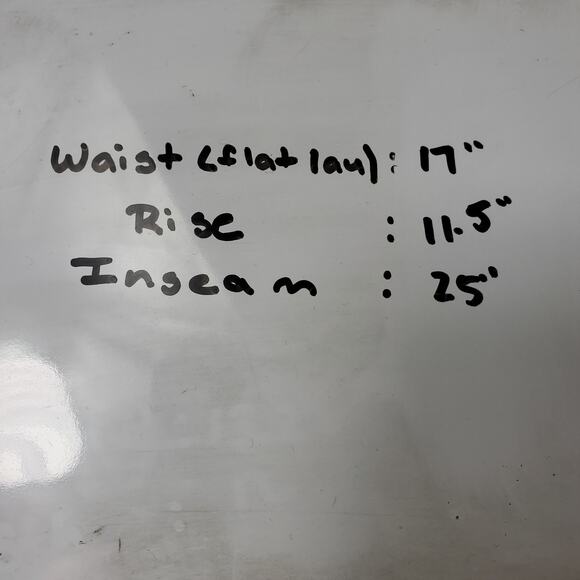 Waist (flat lay): 17"
Rise : 11.5"
Inseam : 25"